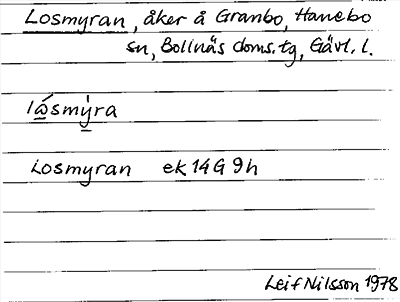 Losmyran, åker å Granbo, Hanebo
sn, Bollnäs doms.tg, Gävl. l.
lǻsmýra
Losmyran ek 14 G 9 h
Leif Nilsson 1978